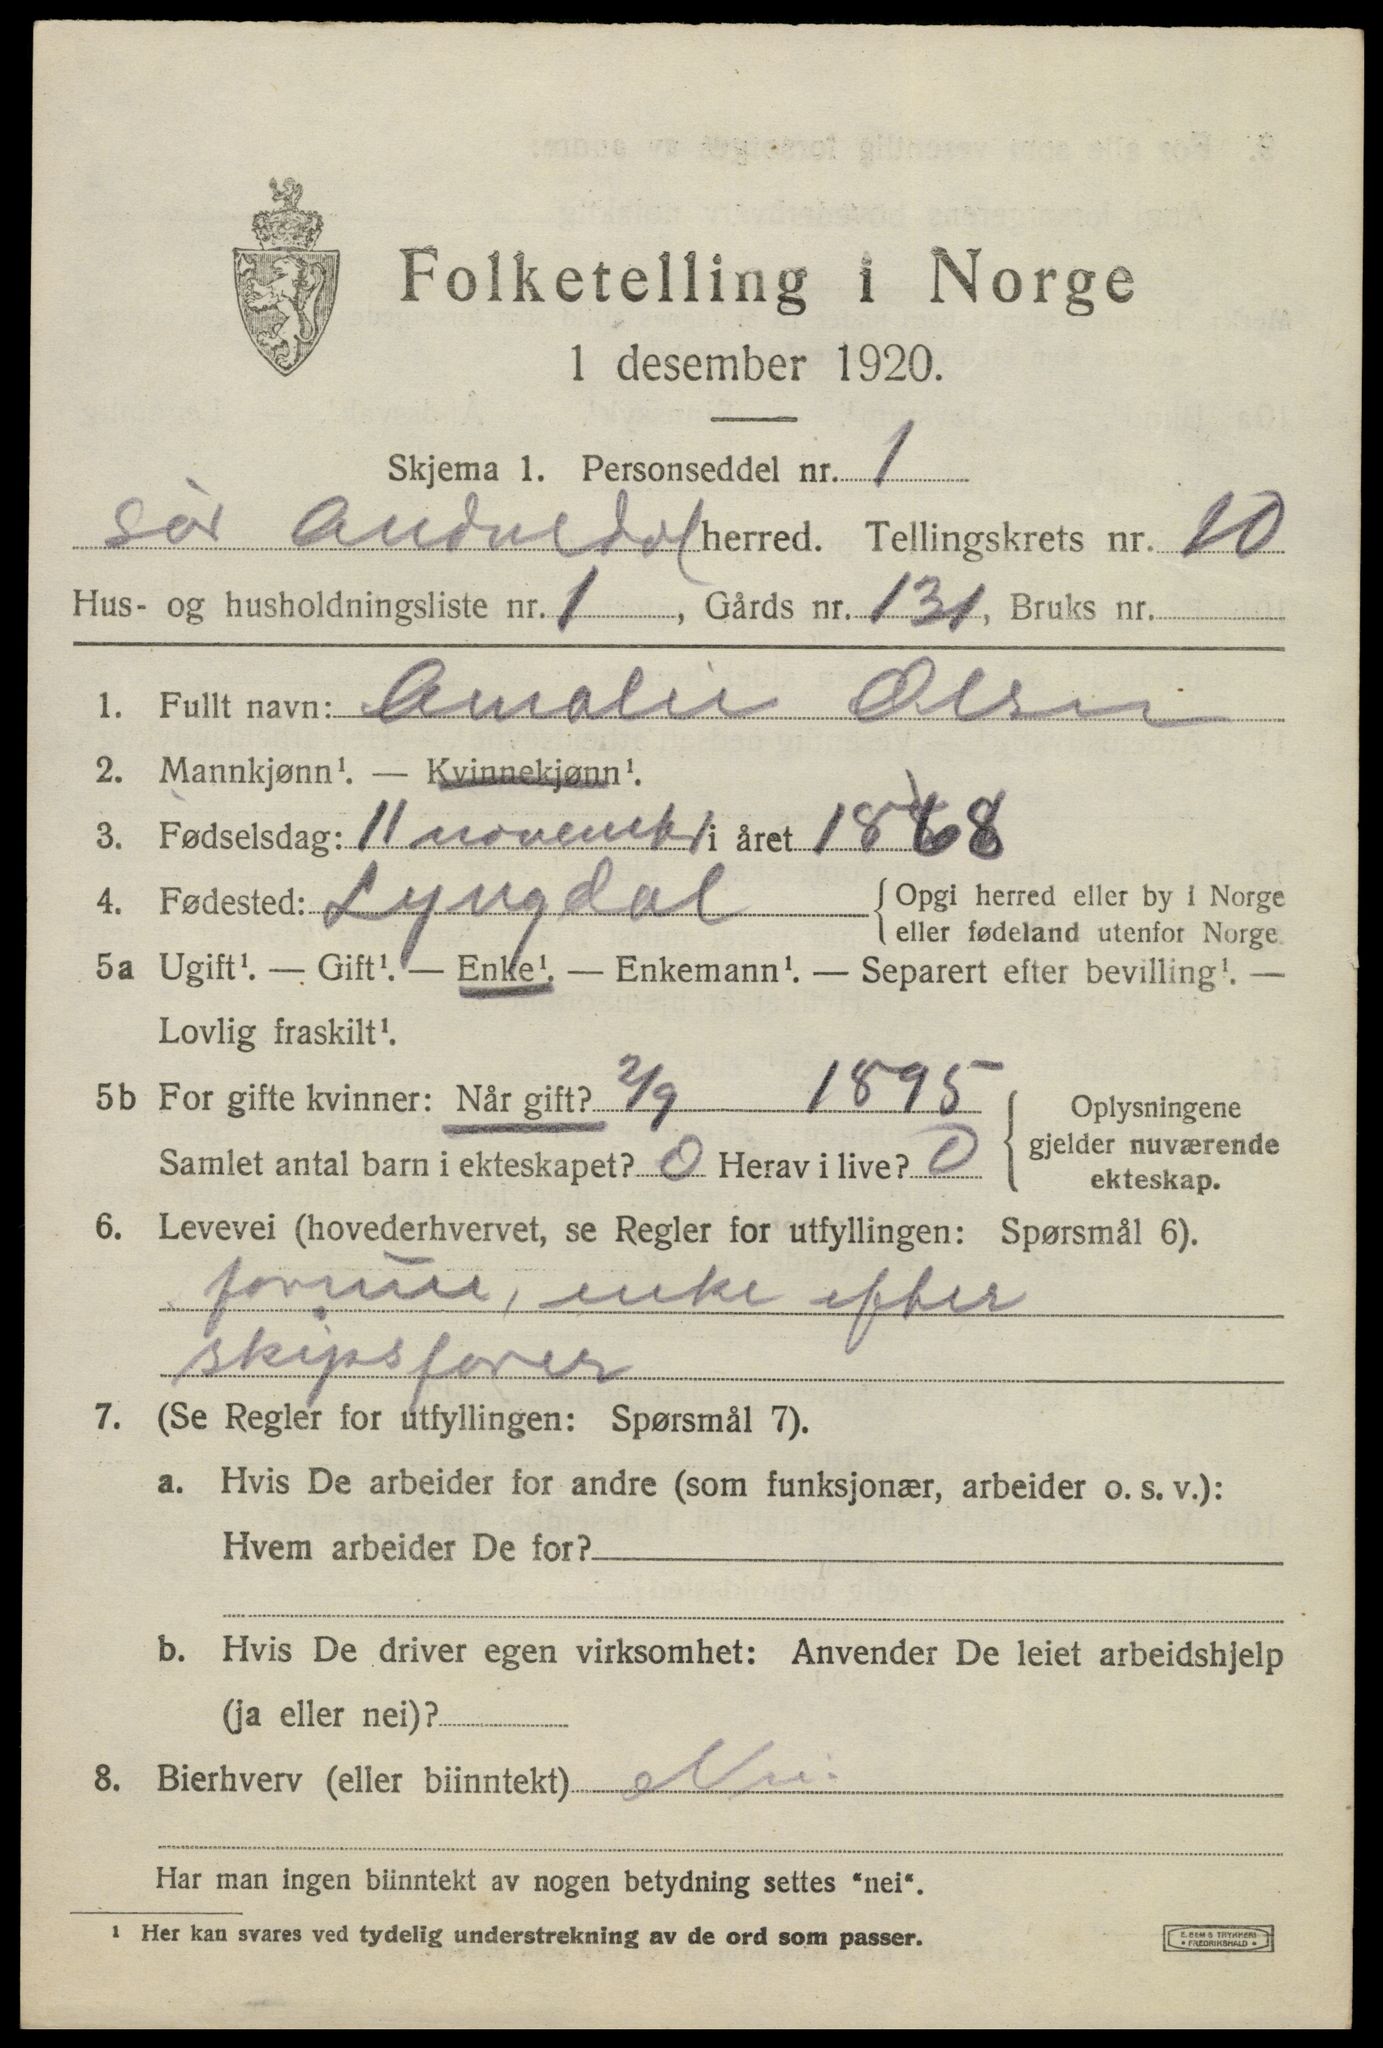 Folketelling i Norge
1 desember 1920.
Skjema 1. Personseddel nr. 1
Sør Audnedal herred. Tellingskrets nr. 10
Hus- og husholdningsliste nr. 1, Gårds nr. 131, Bruks nr.
1. Fullt navn: Amalie Olsen
2. Mannkjønn¹. — Kvinnekjønn¹.
3. Fødselsdag: 11 november i året 1868
4. Fødested: Lyngdal {Opgi herred eller by i Norge
eller fødeland utenfor Norge.
5a Ugift¹. — Gift¹. — Enke¹. — Enkemann¹. — Separert efter bevilling¹. —
Lovlig fraskilt¹.
5b For gifte kvinner: Når gift? 2/9 1895
Samlet antal barn i ekteskapet? 0 Herav i live? 0
Oplysningene
gjelder nuværende
ekteskap.
6. Levevei (hovederhvervet, se Regler for utfyllingen: Spørsmål 6).
formue, enke efter
skipsfører
7. (Se Regler for utfyllingen: Spørsmål 7).
a. Hvis De arbeider for andre (som funksjonær, arbeider o. s. v.):
Hvem arbeider De for?
b. Hvis De driver egen virksomhet: Anvender De leiet arbeidshjelp
(ja eller nei)?
8. Bierhverv (eller biinntekt) Nei.
Har man ingen biinntekt av nogen betydning settes "nei".
¹ Her kan svares ved tydelig understrekning av de ord som passer.
E. SEM'S TRYKKERI
• FREDRIKSHALD •